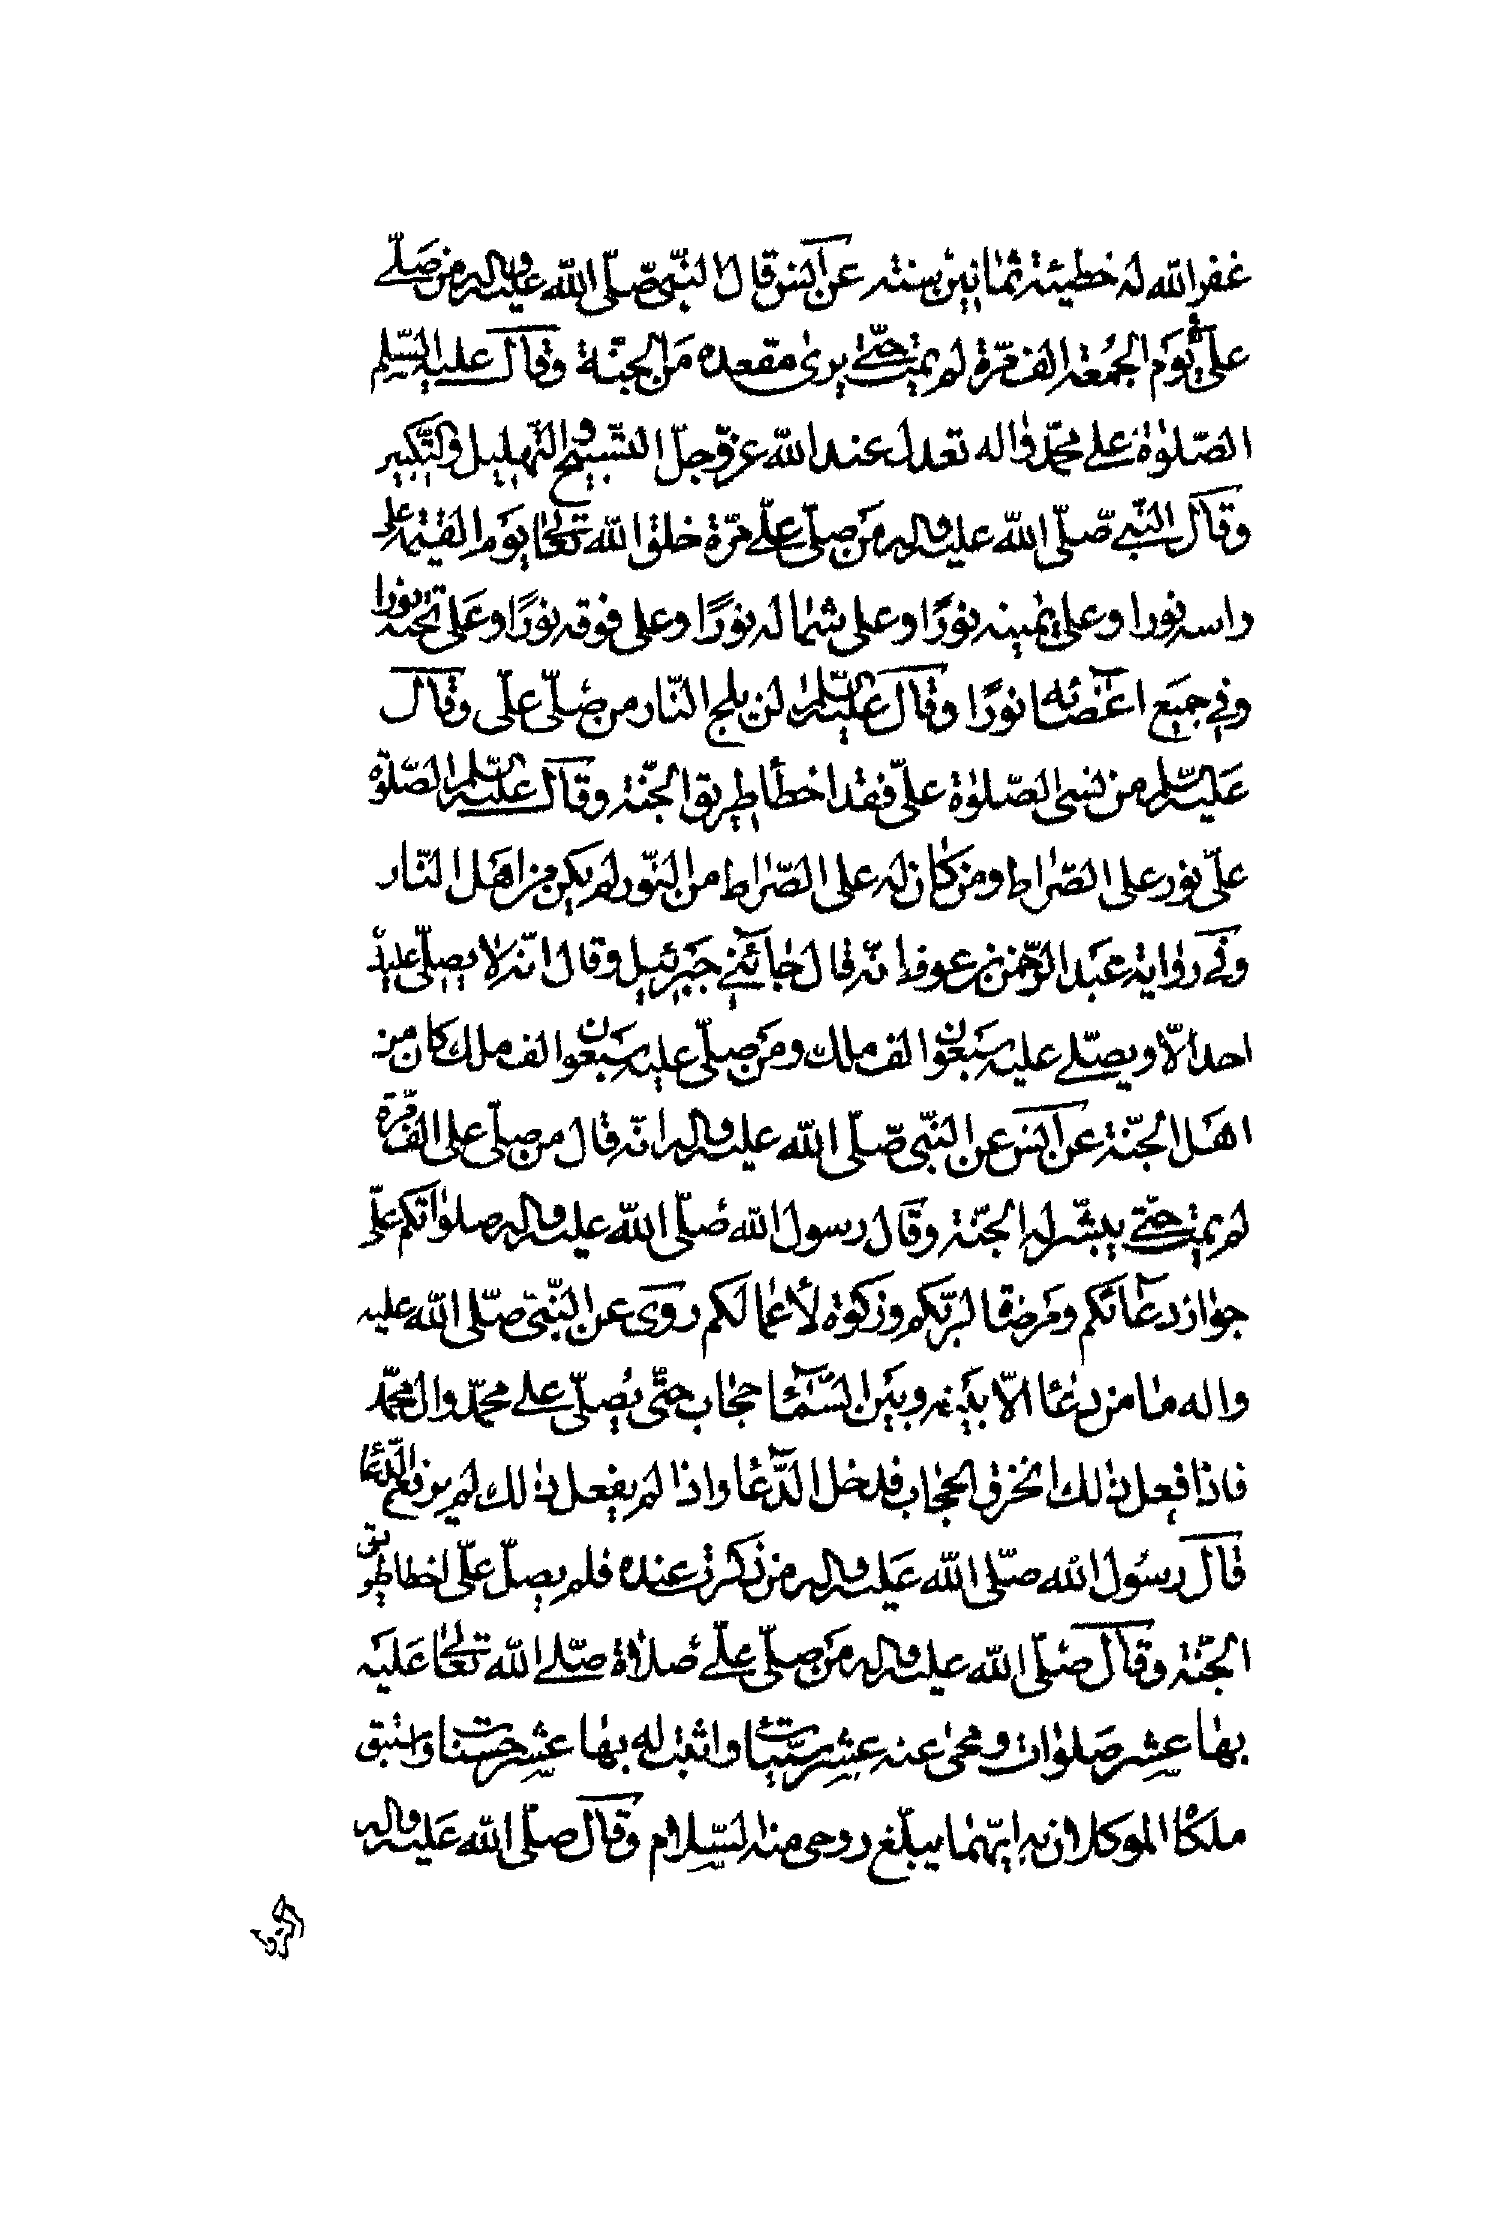 غفر الله له خطيئة ثمانين سنته عن انس قال النبي صلّى الله عليه واله من صلّے
علىّ يوم الجمعة الف مرّة لم يمت حتّے يرى مقعده من الجنّة وقال عليه السّلم
الصّلوٰة علے محمّد واله تعدل عند الله عزّوجلّ التسبيح والتّهليل والتّكبير
وقال النبّے صلّى الله عليه واله من صلّى علّے مرّة خلق الله تعالىٰ يوم القيٰمة على
راسه نورا وعلى يمينه نورًا وعلى شماله نورًا وعلى فوقه نورًا وعلى تحته نورا
وفي جميع اعضائه نورًا وقال عليه السّلم لن يلج النّار من صلّى علّى وقال
عليه السّلم من نسى الصّلوٰة علىّ فقد اخطأ طريق الجنّة وقال عليه السّلم الصّلوٰة
علىّ نور على الصّراط ومن كان له على الصّراط من النّور لم يكن من اهل النّار
وفے رواية عبد الرّحمٰن بن عوف انّه قال جائنے جبرئيل وقال انّه لا يصلّى عليك
احد الّا ويصلّے عليه سبعون الف ملك ومن صلّى عليه سبعون الف ملك كان من
اهل الجنّة عن انس عن النّبى صلّى الله عليه واله انّه قال من صلّى على الف مرّة
لم يمت حتّے يبشّر له الجنّة وقال رسول الله صلّى الله عليه واله صلواتكم علىّ
جواز دعائكم ومرضة لربّكم وزكوٰة لأعمالكم روى عن النّبى صلّى الله عليه
واله ما من دعاء الّا بينه وبين السّماء حجاب حتّى يصلّى علے محمّد وال محمّد
فاذا فعل ذٰلك انخرق الحجاب فدخل الدّعاء واذا لم يفعل ذٰلك لم يرفع الدّعاء
قال رسول الله صلّى الله عليه واله من ذكرت عنده فلم يصلّ علىّ اخطا طريق
الجنّة وقال صلّى الله عليه واله من صلّى علّے صلاة صلّے الله تعالىٰ عليه
بها عشر صلوات ومحى عنه عشر سيّئات واثبت له بها عشر حسنات واستبق
ملكاه الموكلان به ايّهما يبلّغ روحى منه السّلام وقال صلّى الله عليه واله